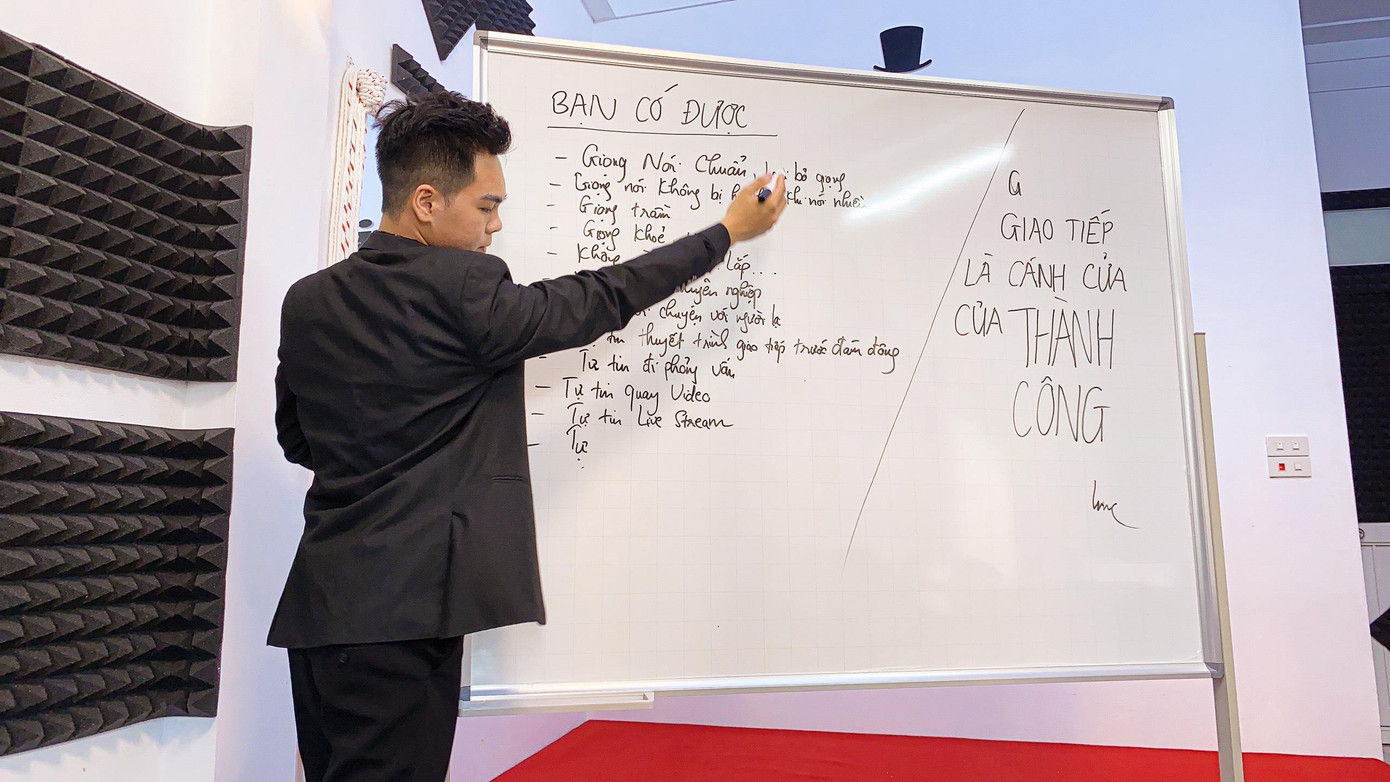 BẠN CÓ ĐƯỢC
- Giọng Nói Chuẩn bỏ giọng
- Giọng nói không bị khi nói nhiều
- Giọng trầm
- Giọng khoẻ
- Không lắp....
nghiệp
chuyện với người lạ
tin thuyết trình giao tiếp trước đám đông
- Tự tin đi phỏng vấn
- Tự tin quay Video
- Tự tin Live Stream
- Tự
G
GIAO TIẾP
LÀ CÁNH CỬA
CỦA THÀNH
CÔNG